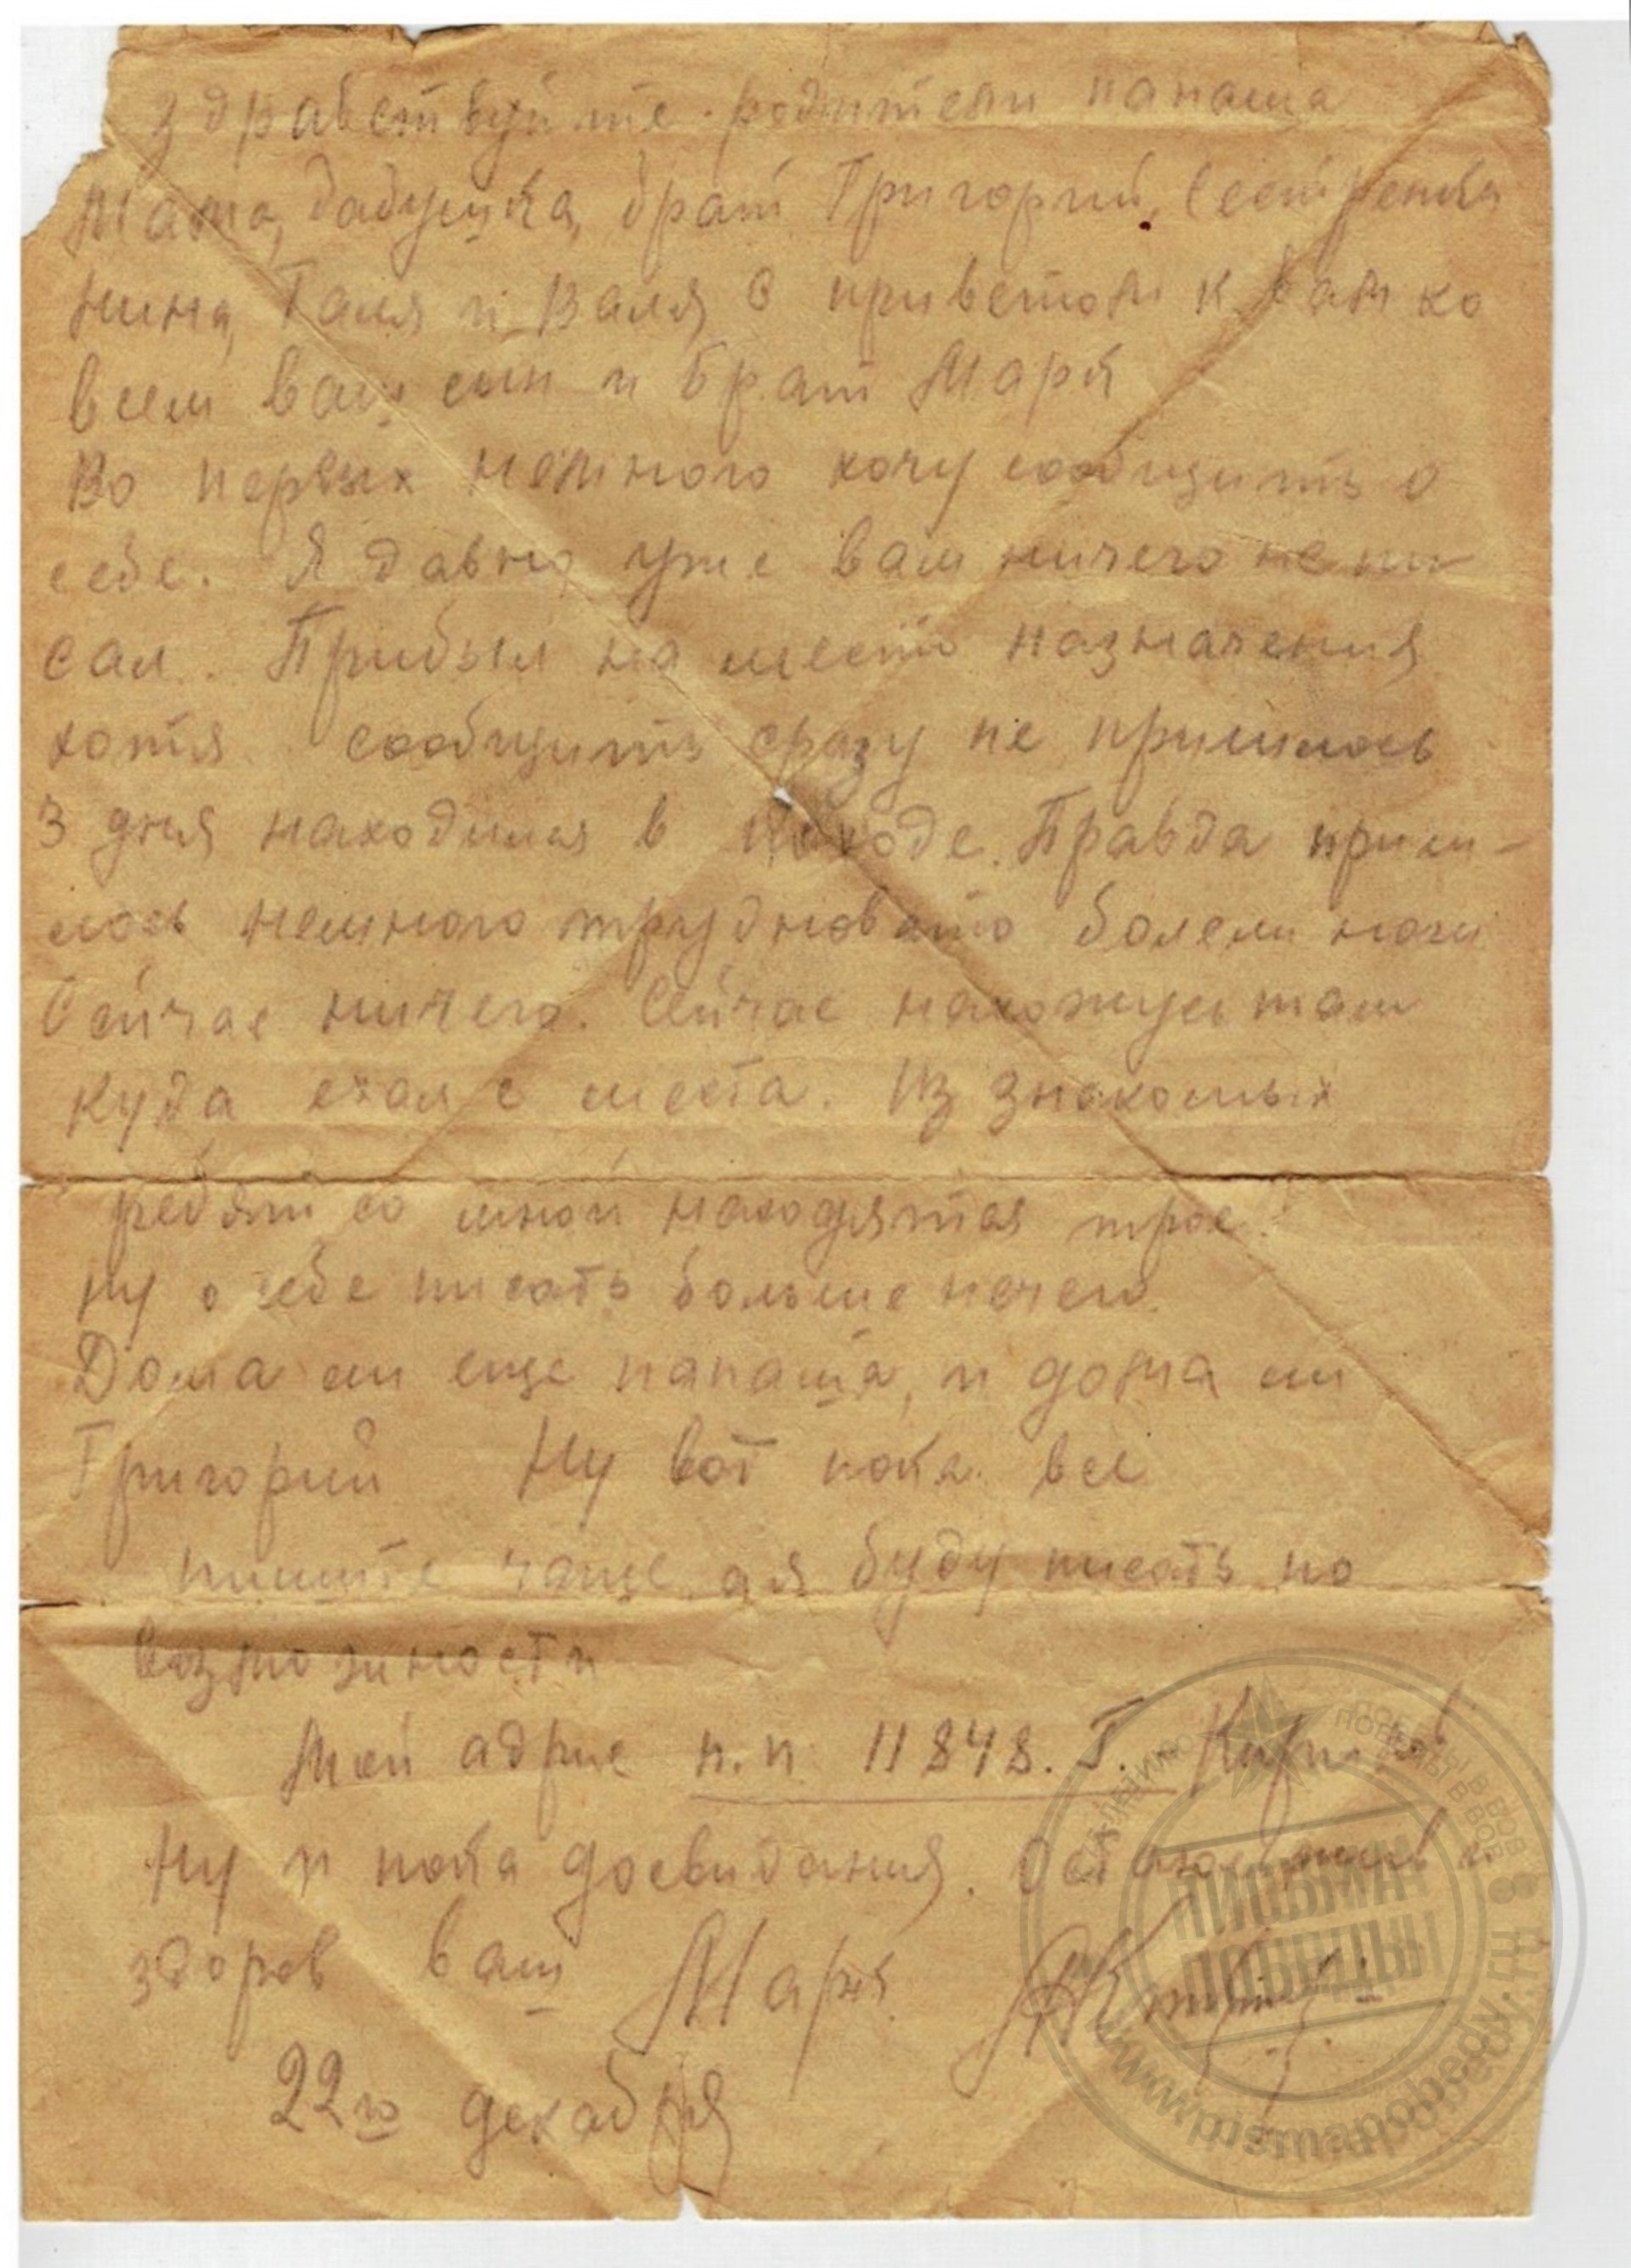 Здравствуйте родители папаша
Мама, бабушка, брат Григорий, Сестренка
Нина, Галя и Валя с приветом к вам ко
всем ваш сын и брат Марк
Во первых немного хочу сообщить о
себе. Я давно уже вам ничего не пи-
сал. Прибыл на место назначения
хотя сообщить сразу не пришлось
3 дня находился в походе. Правда приш-
лось немного трудновато болели ноги
Сейчас ничего. Сейчас нахожусь там
куда ехал с места. Из знакомых
ребят со мной находятся трое.
Ну о себе писать больше нечего.
Дома ли еще папаша, и дома ли
Григорий Ну вот пока все
пишите чаще а я буду писать по
возможности
Мой адрис п.п 11848. Т.
Ну и пока досвидания. Остаюсь жив и
здоров ваш Марк
22го декабря
ПИСЬМА
ПОБЕДЫ
www.pismapobedy.ru